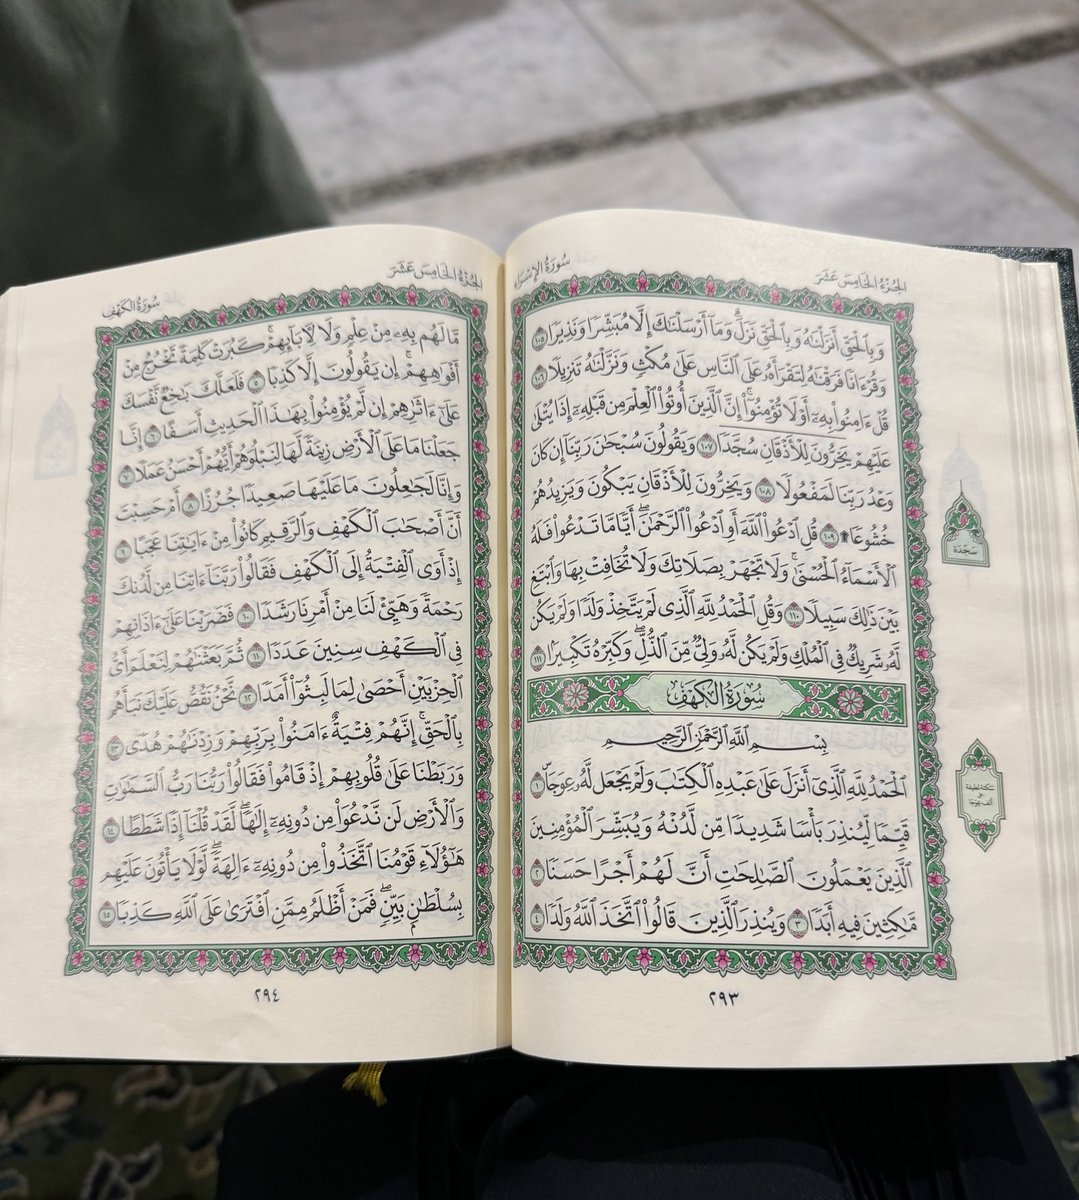 الجزء الخامس عشر
سورة الإسراء
وَبِٱلْحَقِّ أَنزَلْنَٰهُ وَبِٱلْحَقِّ نَزَلَ ۗ وَمَآ أَرْسَلْنَٰكَ إِلَّا مُبَشِّرًا وَنَذِيرًا ١٠٥
وَقُرْءَانًا فَرَقْنَٰهُ لِتَقْرَأَهُۥ عَلَى ٱلنَّاسِ عَلَىٰ مُكْثٍ وَنَزَّلْنَٰهُ تَنزِيلًا ١٠٦
قُلْ ءَامِنُوا۟ بِهِۦٓ أَوْ لَا تُؤْمِنُوٓا۟ ۚ إِنَّ ٱلَّذِينَ أُوتُوا۟ ٱلْعِلْمَ مِن قَبْلِهِۦٓ إِذَا يُتْلَىٰ
عَلَيْهِمْ يَخِرُّونَ لِلْأَذْقَانِ سُجَّدًا ١٠٧ وَيَقُولُونَ سُبْحَٰنَ رَبِّنَآ إِن كَانَ
وَعْدُ رَبِّنَا لَمَفْعُولًا ١٠٨ وَيَخِرُّونَ لِلْأَذْقَانِ يَبْكُونَ وَيَزِيدُهُمْ
خُشُوعًا ۩ ١٠٩ قُلِ ٱدْعُوا۟ ٱللَّهَ أَوِ ٱدْعُوا۟ ٱلرَّحْمَٰنَ ۖ أَيًّا مَّا تَدْعُوا۟ فَلَهُ
ٱلْأَسْمَآءُ ٱلْحُسْنَىٰ ۚ وَلَا تَجْهَرْ بِصَلَاتِكَ وَلَا تُخَافِتْ بِهَا وَٱبْتَغِ
بَيْنَ ذَٰلِكَ سَبِيلًا ١١٠ وَقُلِ ٱلْحَمْدُ لِلَّهِ ٱلَّذِى لَمْ يَتَّخِذْ وَلَدًا وَلَمْ يَكُن
لَّهُۥ شَرِيكٌ فِى ٱلْمُلْكِ وَلَمْ يَكُن لَّهُۥ وَلِىٌّ مِّنَ ٱلذُّلِّ ۖ وَكَبِّرْهُ تَكْبِيرًۢا ١١١
سُورَةُ الكَهْفِ
بِسْمِ ٱللَّهِ ٱلرَّحْمَٰنِ ٱلرَّحِيمِ
ٱلْحَمْدُ لِلَّهِ ٱلَّذِىٓ أَنزَلَ عَلَىٰ عَبْدِهِ ٱلْكِتَٰبَ وَلَمْ يَجْعَل لَّهُۥ عِوَجَاۜ ١
قَيِّمًا لِّيُنذِرَ بَأْسًا شَدِيدًا مِّن لَّدُنْهُ وَيُبَشِّرَ ٱلْمُؤْمِنِينَ
ٱلَّذِينَ يَعْمَلُونَ ٱلصَّٰلِحَٰتِ أَنَّ لَهُمْ أَجْرًا حَسَنًا ٢
مَّٰكِثِينَ فِيهِ أَبَدًا ٣ وَيُنذِرَ ٱلَّذِينَ قَالُوا۟ ٱتَّخَذَ ٱللَّهُ وَلَدًا ٤
سجدة
سكتة لطيفة
على
ألف عوجا
٢٩٣
الجزء الخامس عشر
سورة الكهف
مَّا لَهُم بِهِۦ مِنْ عِلْمٍ وَلَا لِءَابَآئِهِمْ ۚ كَبُرَتْ كَلِمَةً تَخْرُجُ مِنْ
أَفْوَٰهِهِمْ ۚ إِن يَقُولُونَ إِلَّا كَذِبًا ٥ فَلَعَلَّكَ بَٰخِعٌ نَّفْسَكَ
عَلَىٰٓ ءَاثَٰرِهِمْ إِن لَّمْ يُؤْمِنُوا۟ بِهَٰذَا ٱلْحَدِيثِ أَسَفًا ٦ إِنَّا
جَعَلْنَا مَا عَلَى ٱلْأَرْضِ زِينَةً لَّهَا لِنَبْلُوَهُمْ أَيُّهُمْ أَحْسَنُ عَمَلًا ٧
وَإِنَّا لَجَٰعِلُونَ مَا عَلَيْهَا صَعِيدًا جُرُزًا ٨ أَمْ حَسِبْتَ
أَنَّ أَصْحَٰبَ ٱلْكَهْفِ وَٱلرَّقِيمِ كَانُوا۟ مِنْ ءَايَٰتِنَا عَجَبًا ٩
إِذْ أَوَى ٱلْفِتْيَةُ إِلَى ٱلْكَهْفِ فَقَالُوا۟ رَبَّنَآ ءَاتِنَا مِن لَّدُنكَ
رَحْمَةً وَهَيِّئْ لَنَا مِنْ أَمْرِنَا رَشَدًا ١٠ فَضَرَبْنَا عَلَىٰٓ ءَاذَانِهِمْ
فِى ٱلْكَهْفِ سِنِينَ عَدَدًا ١١ ثُمَّ بَعَثْنَٰهُمْ لِنَعْلَمَ أَىُّ
ٱلْحِزْبَيْنِ أَحْصَىٰ لِمَا لَبِثُوٓا۟ أَمَدًا ١٢ نَّحْنُ نَقُصُّ عَلَيْكَ نَبَأَهُم
بِٱلْحَقِّ ۚ إِنَّهُمْ فِتْيَةٌ ءَامَنُوا۟ بِرَبِّهِمْ وَزِدْنَٰهُمْ هُدًى ١٣
وَرَبَطْنَا عَلَىٰ قُلُوبِهِمْ إِذْ قَامُوا۟ فَقَالُوا۟ رَبُّنَا رَبُّ ٱلسَّمَٰوَٰتِ
وَٱلْأَرْضِ لَن نَّدْعُوَا۟ مِن دُونِهِۦٓ إِلَٰهًا ۖ لَّقَدْ قُلْنَآ إِذًا شَطَطًا ١٤
هَٰٓؤُلَآءِ قَوْمُنَا ٱتَّخَذُوا۟ مِن دُونِهِۦٓ ءَالِهَةً ۖ لَّوْلَا يَأْتُونَ عَلَيْهِم
بِسُلْطَٰنٍۭ بَيِّنٍ ۖ فَمَنْ أَظْلَمُ مِمَّنِ ٱفْتَرَىٰ عَلَى ٱللَّهِ كَذِبًا ١٥
٢٩٤